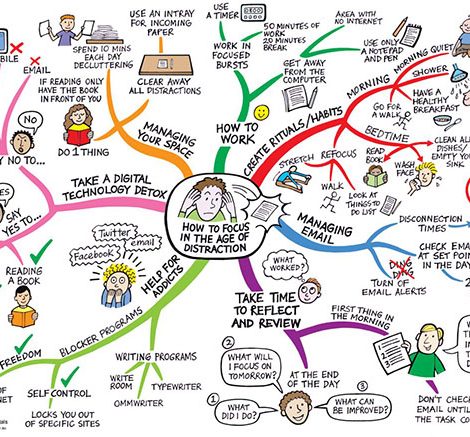 USE A
TIMER
50 MINUTES OF
WORK
20 MINUTES
BREAK
WORK IN
FOCUSED
BURSTS
GET AWAY
FROM THE
COMPUTER
AREA WITH
NO INTERNET
USE ONLY
A NOTEPAD
AND PEN
HOW TO
WORK
USE AN INTRAY
FOR INCOMING
PAPER
SPEND 10 MINS
EACH DAY
DECLUTTERING
CLEAR AWAY
ALL DISTRACTIONS
IF READING ONLY
HAVE THE BOOK
IN FRONT OF YOU
DO 1 THING
MANAGING
YOUR SPACE
EMAIL
NO
NO TO...
TAKE A DIGITAL
TECHNOLOGY DETOX
SAY
YES TO...
READING
A BOOK
HOW TO FOCUS
IN THE AGE OF
DISTRACTION
CREATE RITUALS/HABITS
MORNING
MORNING QUIET
SHOWER
HAVE A
HEALTHY
BREAKFAST
GO FOR
A WALK
BEDTIME
READ
BOOK
WASH
FACE
CLEAN
DISHES/
EMPTY
SINK
STRETCH
REFOCUS
WALK
LOOK AT
THINGS TO
DO LIST
MANAGING
EMAIL
DISCONNECTION
TIMES
CHECK EMAIL
AT SET
IN THE DAY
DING
DING
TURN OF
EMAIL ALERTS
TAKE TIME
TO REFLECT
AND REVIEW
WHAT
WORKED?
FIRST THING
IN THE
MORNING
1
2
3
DON'T CHECK
EMAIL UNTIL
THE TASK
AT THE END
OF THE DAY
1
WHAT
DID I DO?
2
WHAT WILL
I FOCUS ON
TOMORROW?
3
WHAT CAN
BE IMPROVED?
HELP FOR
ADDICTS
Twitter
email
Facebook
BLOCKER PROGRAMS
FREEDOM
SELF CONTROL
LOCKS YOU OUT
OF SPECIFIC SITES
WRITING PROGRAMS
WRITE
ROOM
TYPEWRITER
OMMWRITER